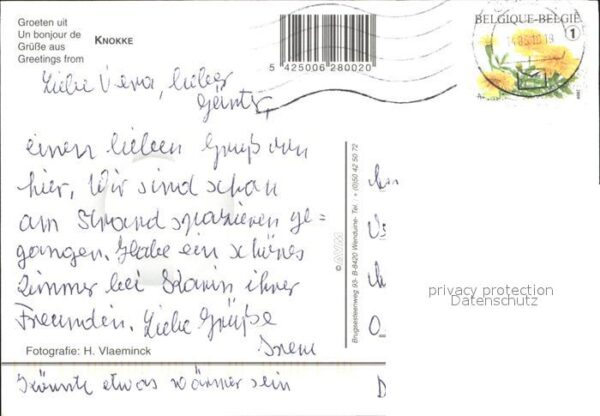 Groeten uit
Un bonjour de
Grüße aus
Greetings from
KNOKKE
5 425006 280020
BELGIQUE-BELGIË
1
Liebe Vera, lieber
Günter,
einen lieben Gruß von
hier, Wir sind schon
am Strand spazieren ge=
gangen. Habe ein schönes
Zimmer bei Karin ihrer
Freundin. Liebe Grüße
Irene
Fotografie: H. Vlaeminck
Könnte etwas wärmer sein
Brugsesteenweg 93- B-8420 Wenduine- Tel. + (0)50 42 50 72
privacy protection
Datenschutz